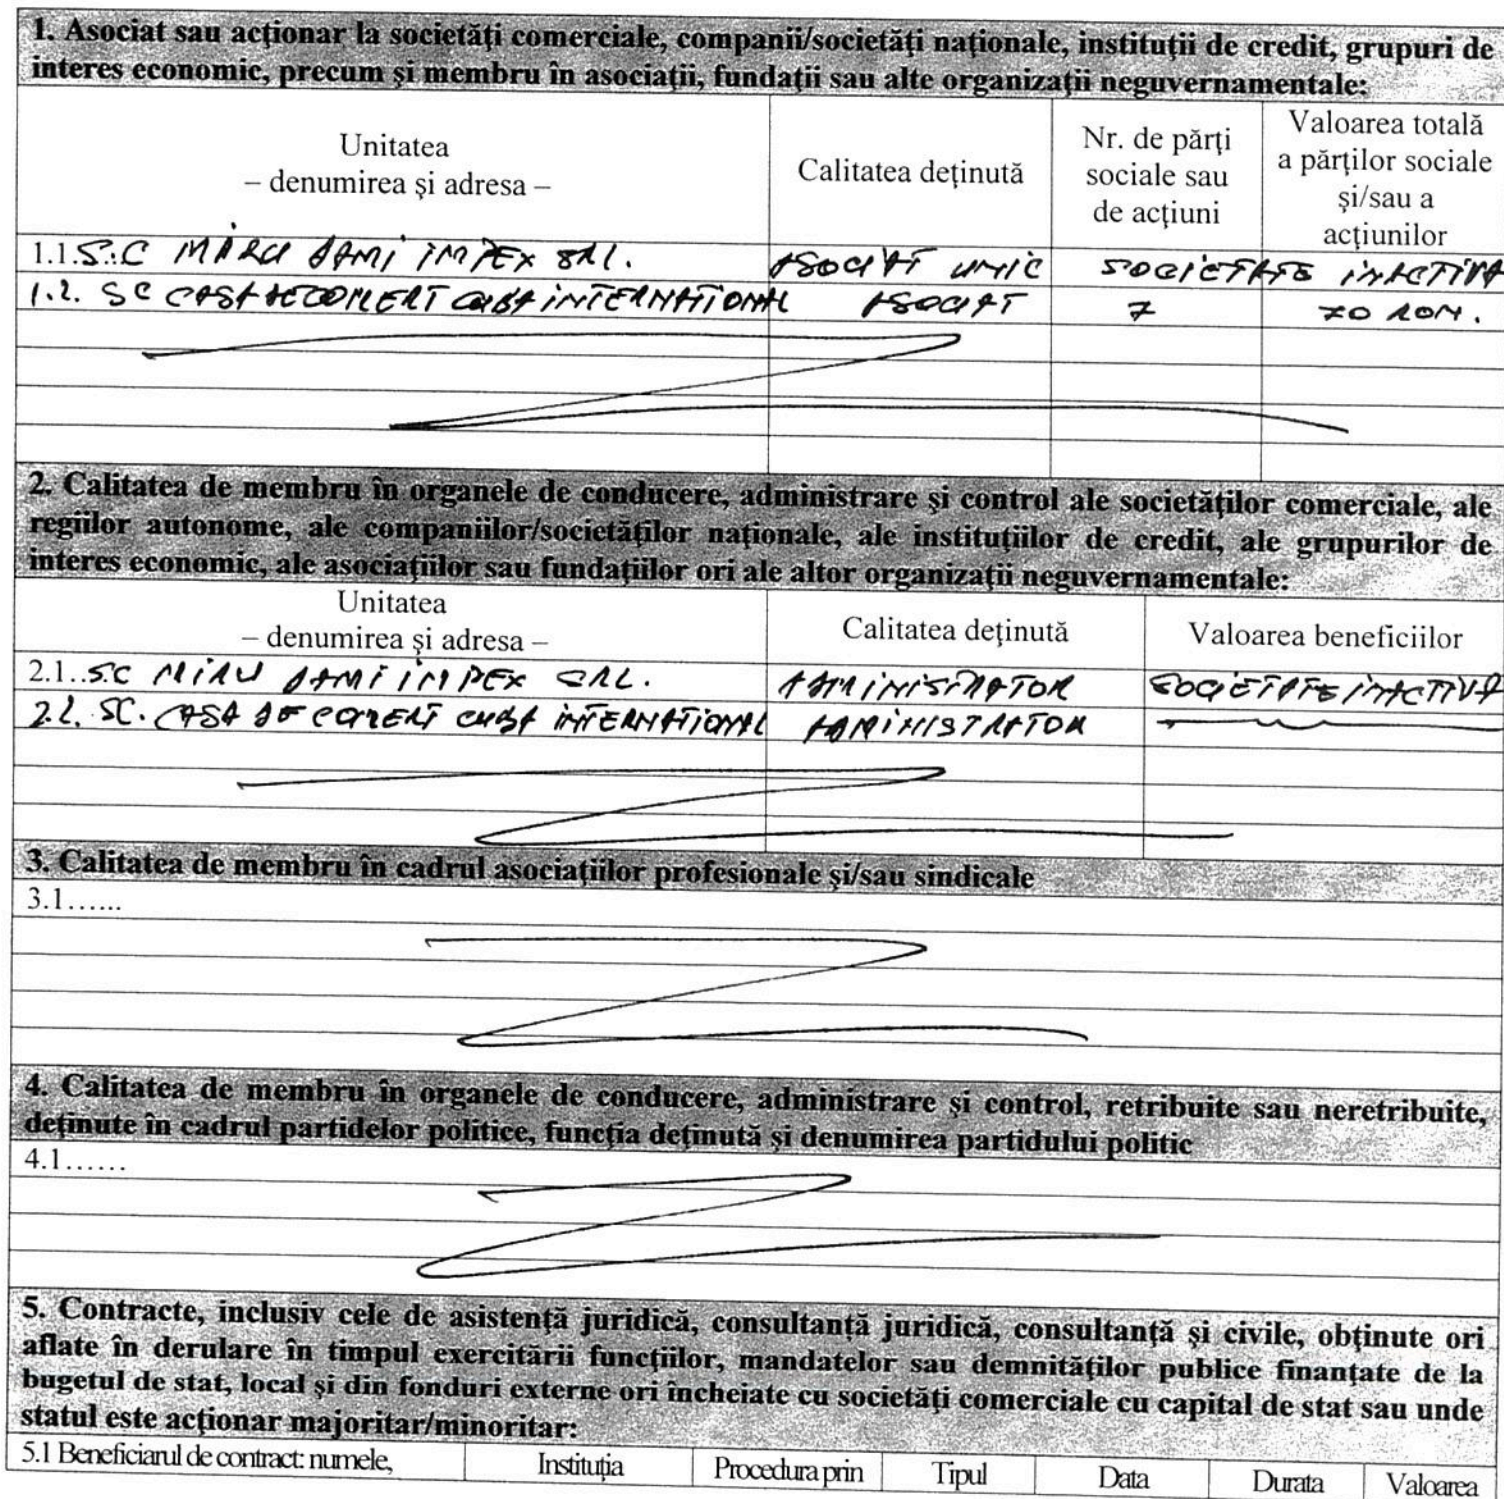 1. Asociat sau acţionar la societăţi comerciale, companii/societăţi naţionale, instituţii de credit, grupuri de
interes economic, precum şi membru în asociaţii, fundaţii sau alte organizaţii neguvernamentale:
Unitatea
– denumirea şi adresa –
Calitatea deţinută
Nr. de părţi
sociale sau
de acţiuni
Valoarea totală
a părţilor sociale
şi/sau a
acţiunilor
1.1. S.C IMPEX SRL. ASOCIAT UNIC SOCIETATE INACTIVA
1.2. SC CASA DE COMERT CUBA INTERNATIONAL ASOCIAT 7 70 RON.
2. Calitatea de membru în organele de conducere, administrare şi control ale societăţilor comerciale, ale
regiilor autonome, ale companiilor/societăţilor naţionale, ale instituţiilor de credit, ale grupurilor de
interes economic, ale asociaţiilor sau fundaţiilor ori ale altor organizaţii neguvernamentale:
Unitatea
– denumirea şi adresa –
Calitatea deţinută
Valoarea beneficiilor
2.1..S.C IMPEX SRL. ADMINISTRATOR SOCIETATE INACTIVA
2.2. SC. CASA DE COMERT CUBA INTERNATIONAL ADMINISTRATOR
3. Calitatea de membru în cadrul asociaţiilor profesionale şi/sau sindicale
3.1......
4. Calitatea de membru în organele de conducere, administrare şi control, retribuite sau neretribuite,
deţinute în cadrul partidelor politice, funcţia deţinută şi denumirea partidului politic
4.1......
5. Contracte, inclusiv cele de asistenţă juridică, consultanţă juridică, consultanţă şi civile, obţinute ori
aflate în derulare în timpul exercitării funcţiilor, mandatelor sau demnităţilor publice finanţate de la
bugetul de stat, local şi din fonduri externe ori încheiate cu societăţi comerciale cu capital de stat sau unde
statul este acţionar majoritar/minoritar:
5.1 Beneficiarul de contract: numele, Instituţia Procedura prin Tipul Data Durata Valoarea